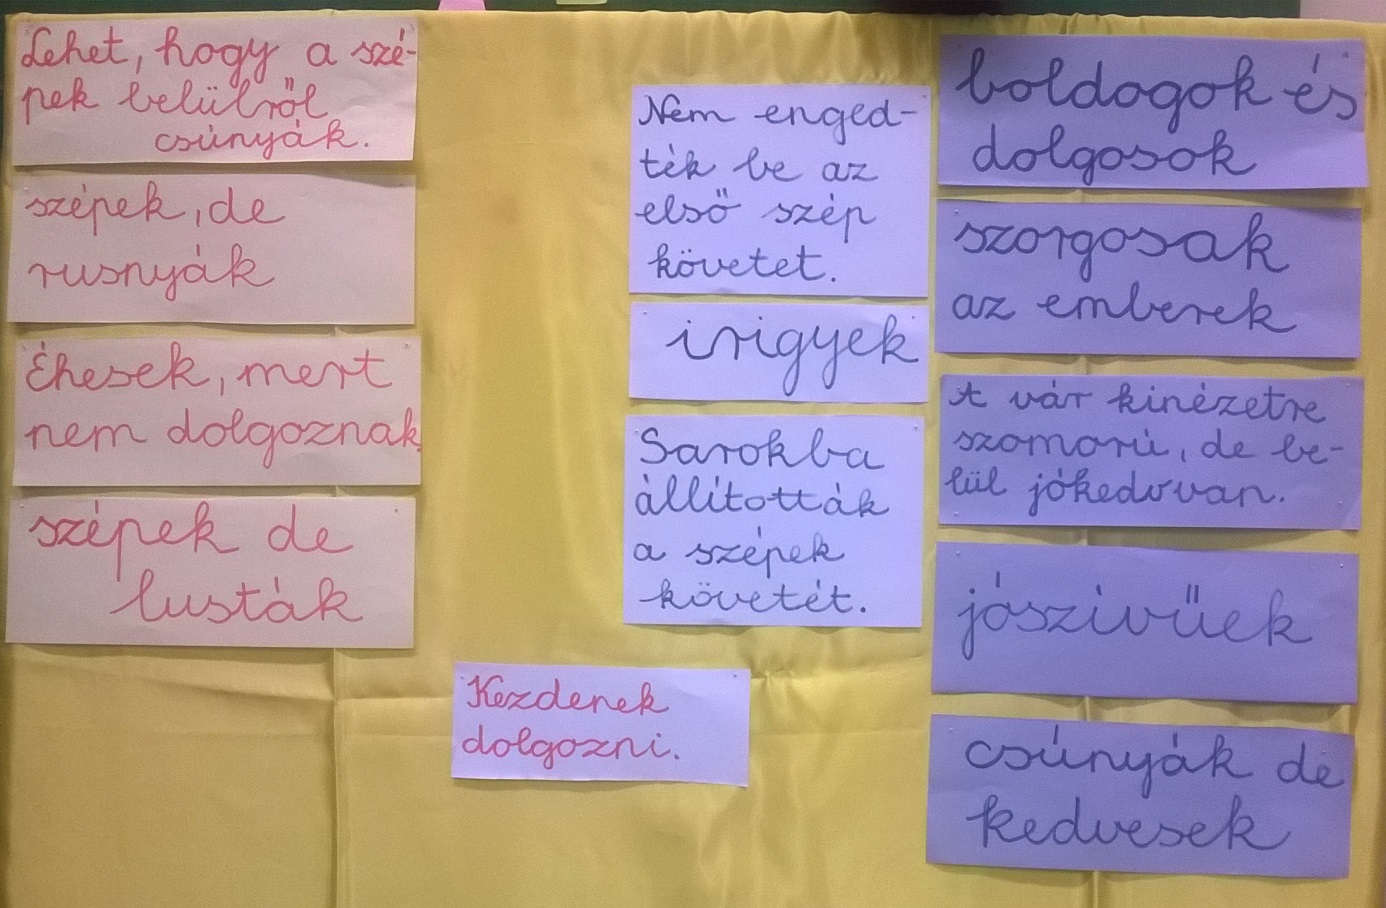 Lehet, hogy a szé-
pek belülről
csúnyák.
szépek, de
rusnyák
Éhesek, mert
nem dolgoznak
szépek de
lusták
Kezdenek
dolgozni.
Nem enged-
ték be az
első szép
követet.
irigyek
Sarokba
állították
a szépek
követét.
boldogok és
dolgosok
szorgosak
az emberek
A vár kinézetre
szomorú, de be-
lül jókedv van.
jószivűek
csúnyák de
kedvesek